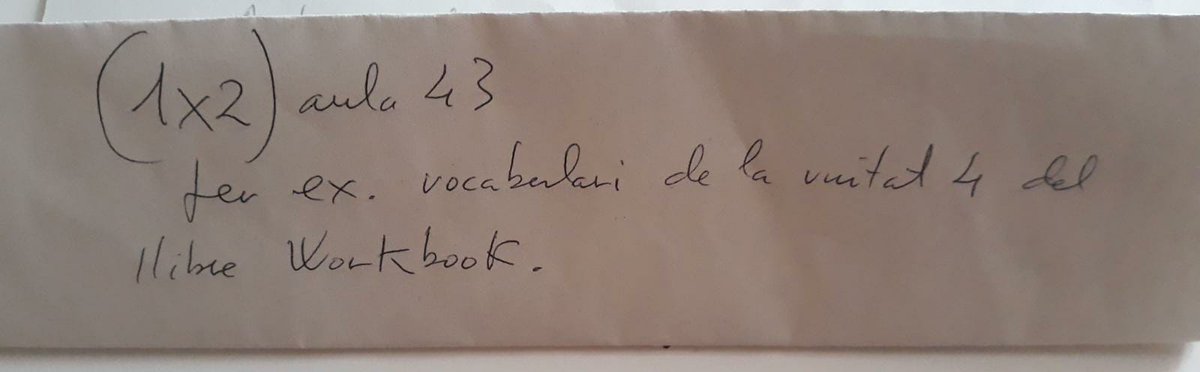 (1x2) aula 43
fer ex. vocabulari de la unitat 4 del
llibre Workbook.